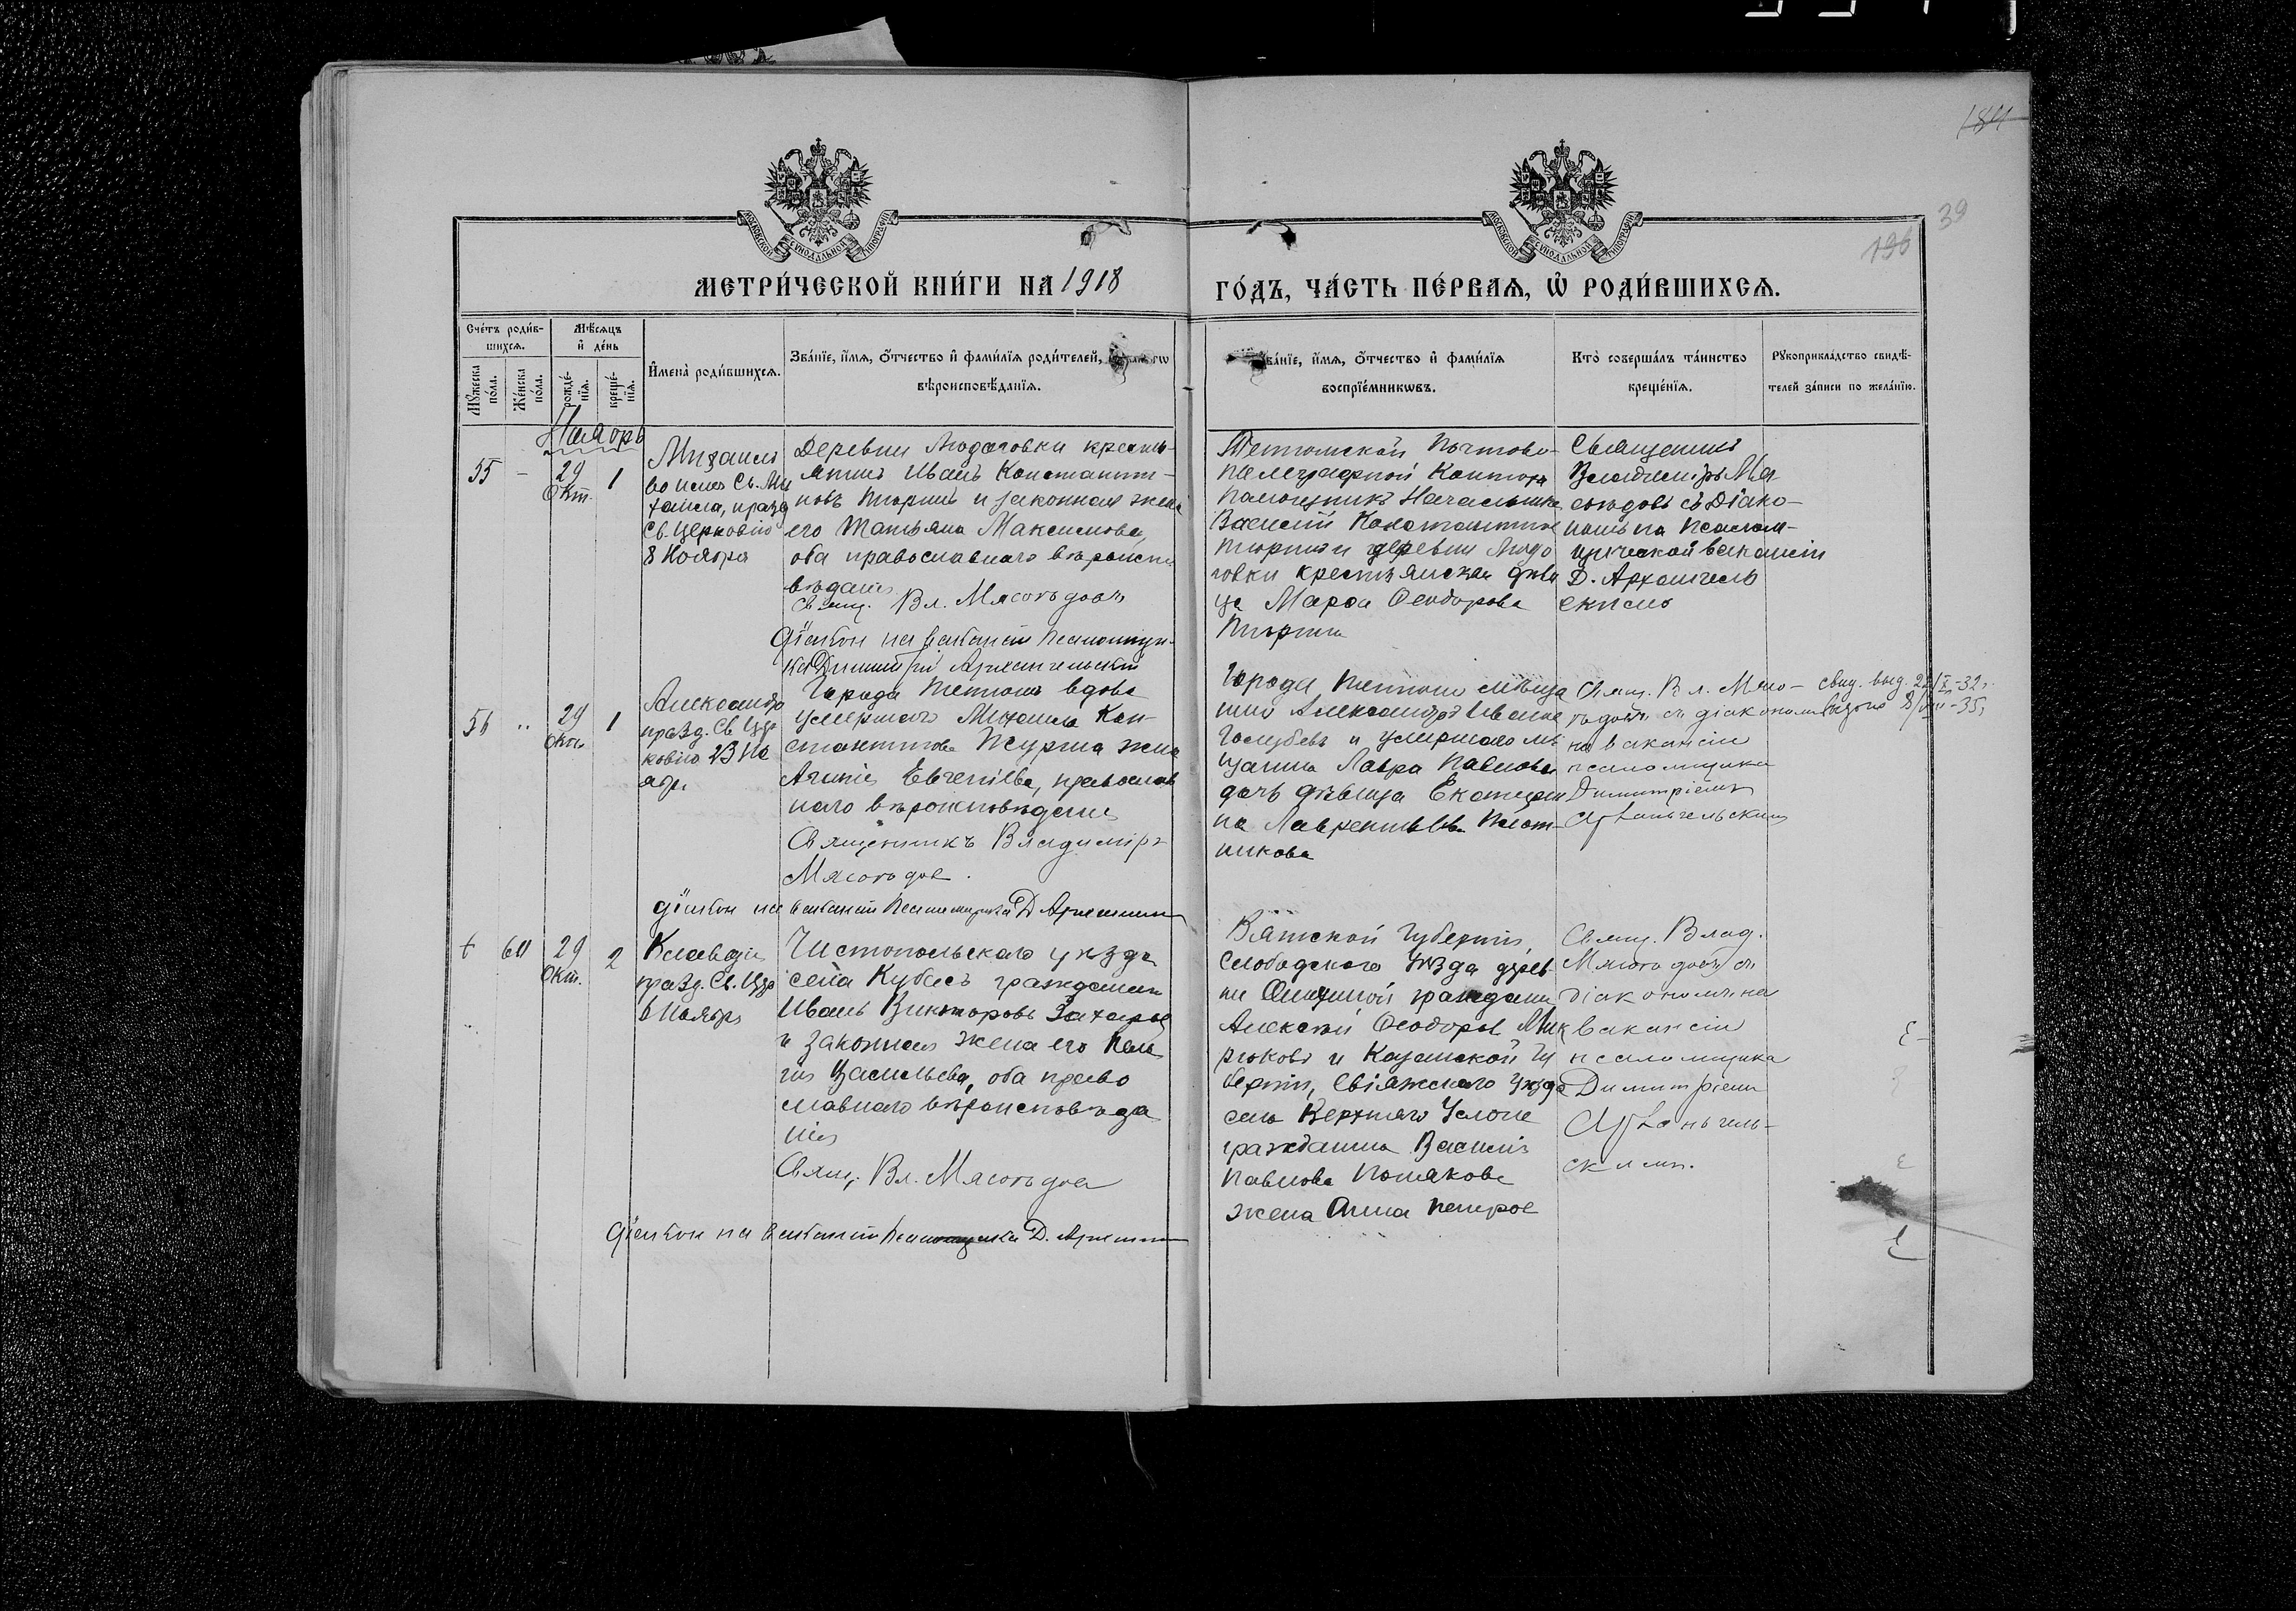 184
39
196
МЕТРИ́ЧЕСКОЙ КНИ́ГИ НА 1918 ГО́ДЪ, ЧА́СТЬ ПЕ́РВАѦ, Ѡ҆ РОДИ́ВШИХСѦ.
Сче́тъ роди́в-
шихсѧ.
Мѣ́сѧцъ
и҆ де́нь
Мꙋ́жеска
по́ла.
Же́нска
по́ла.
рожде́-
нїѧ.
креще́-
нїѧ.
И҆мена̀ роди́вшихсѧ.
Зва́нїе, и҆́мѧ, ѻ҆́тчество и҆ фами́лїѧ роди́телей,
вѣроисповѣ́данїѧ.
ва́нїе, и҆́мѧ, ѻ҆́тчество и҆ фами́лїѧ
воспрїе́мникѡвъ.
Кто̀ соверша́лъ та́инство
креще́нїѧ.
Рꙋкоприкла́дство свидѣ́-
телей за́писи по жела́нїю.
Ноябрь
55 - 29 Окт. 1
Михаилъ
во имя Св. Ми
хаила, празд
Св. Церковію
8 Ноября
Деревни Людоговки кресть-
янинъ Иванъ Константи-
новъ Тюринъ и законная жена
его Татьяна Максимова,
оба православнаго вѣроиспо
вѣданія
Свящ. Вл. Мясоѣдовъ
Діаконъ на вакансіи псаломщи-
ка Димитрій Архангельскій
Тетюшской Почтово-
телеграфной Конторы
помощникъ Начальника
Василій Константинов
Тюринъ и деревни Людо
говки крестьянская дѣви
ца Марѳа Ѳеодорова
Тюрина
Священникъ
Владиміръ Мя
соѣдовъ съ Діако-
номъ на псалом-
щической вакансіи
Д. Архангель
скимъ
56 " 29 Окт. 1
Александр
празд. Св Цер
ковію 23 Но
ября
Города Тетюшъ вдова
умершаго Михаила Кон-
стантинова жена
Евгеніева, православ
наго вѣроисповѣданія
Священникъ Владиміръ
Мясоѣдов.
Діаконъ на вакансіи псаломщика Д Архангел
Города Тетюшъ мѣща
нинъ Александръ Иванов
Голубевъ и умершаго мѣ
щанина Лавра Павлова
дочь дѣвица Екатери
на Лаврентьева Плот-
никова
Свящ. Вл. Мясо-
ѣдовъ съ діакономъ
на вакансіи
псаломщика
Димитріемъ
Архангельскимъ
свид. выд.
-32 г.
-35 г
60 29 Окт. 2
Клавдія
празд. Св. Цер
6 Ноября
Чистопольскаго уѣзда
села Кубасъ гражданин
Иванъ Викторовъ Захаров
и законная жена его Пела
гія Васильева, оба право
славнаго вѣроисповѣда
нія
Свящ. Вл. Мясоѣдов
Діаконъ на вакансіи псаломщика Д. Архангел
Вятской Губерніи,
Слободского Уѣзда дерев
ни гражданин
Алексѣй Ѳеодоров
и Казанской Гу
берніи, Свіяжскаго Уѣзда
села Верхняго Услона
гражданина Василія
Павлова Полякова
жена Анна Петров
Свящ. Влад.
Мясоѣдовъ съ
діакономъ на
вакансіи
псаломщика
Димитріемъ
Архангель-
скимъ.